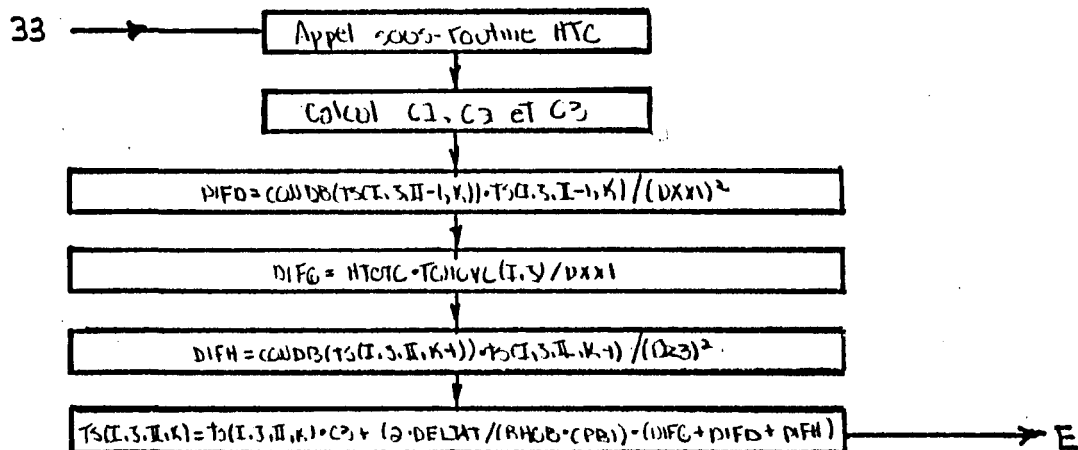 33
Appel sous-routine HTC
Calcul C1, C2 et C3
DIFD=(CONDB(TS(I,J,II-1,K))·TS(I,J,II-1,K)/(DXX1)²
DIFG= HTCTC· (I,J)/DXX1
DIFH=(CONDB(TS(I,J,II,K-1))·TS(I,J,II,K-1)/(DZ3)²
TS(I,J,II,K)=TS(I,J,II,K)·C3+(2·DELTAT/(RHOB·CPB))·(DIFG+DIFD+DIFH)
E